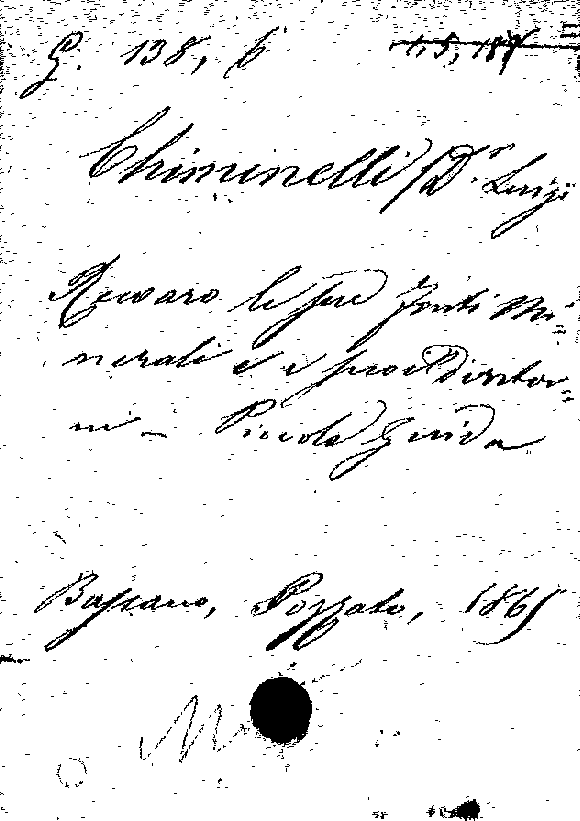 G. 138, 6
Chiminelli Dr. Luigi
Recoaro le sue Fonti Mi=
nerali e i suoi Dintor=
ni - Piccola Guida
Bassano, Pozzato, 1865